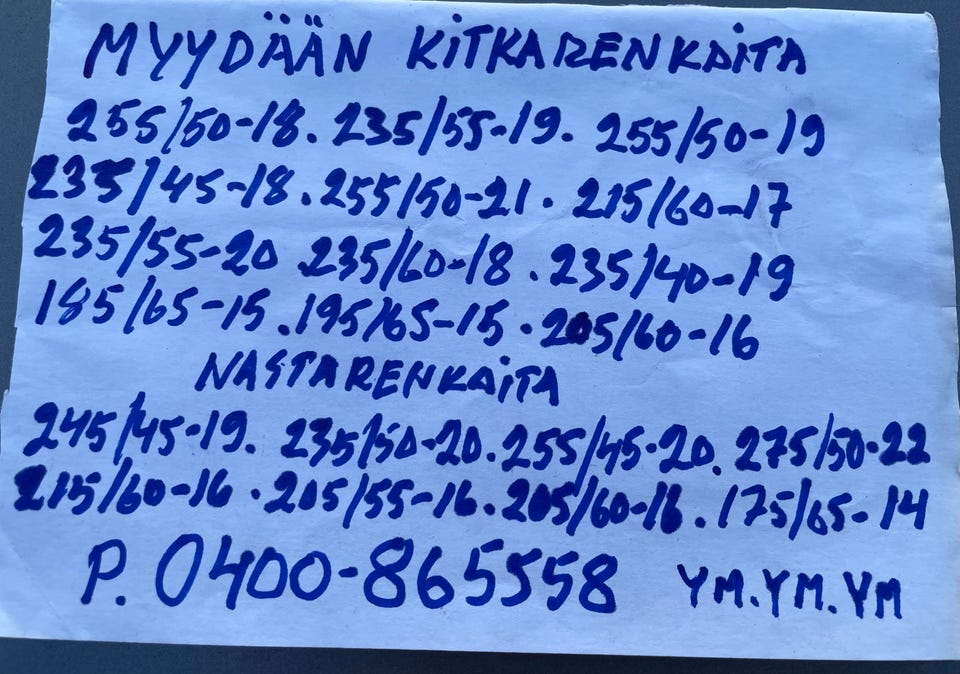 MYYDÄÄN KITKARENKAITA
255/50-18. 235/55-19. 255/50-19
235/45-18. 255/50-21. 215/60-17
235/55-20 .235/60-18. 235/40-19
185/65-15. 195/65-15. 205/60-16
NASTARENKAITA
245/45-19. 235/50-20. 255/45-20. 275/50-22
215/60-16. 205/55-16. 205/60-16. 175/65-14
P. 0400-865558 YM.YM.YM